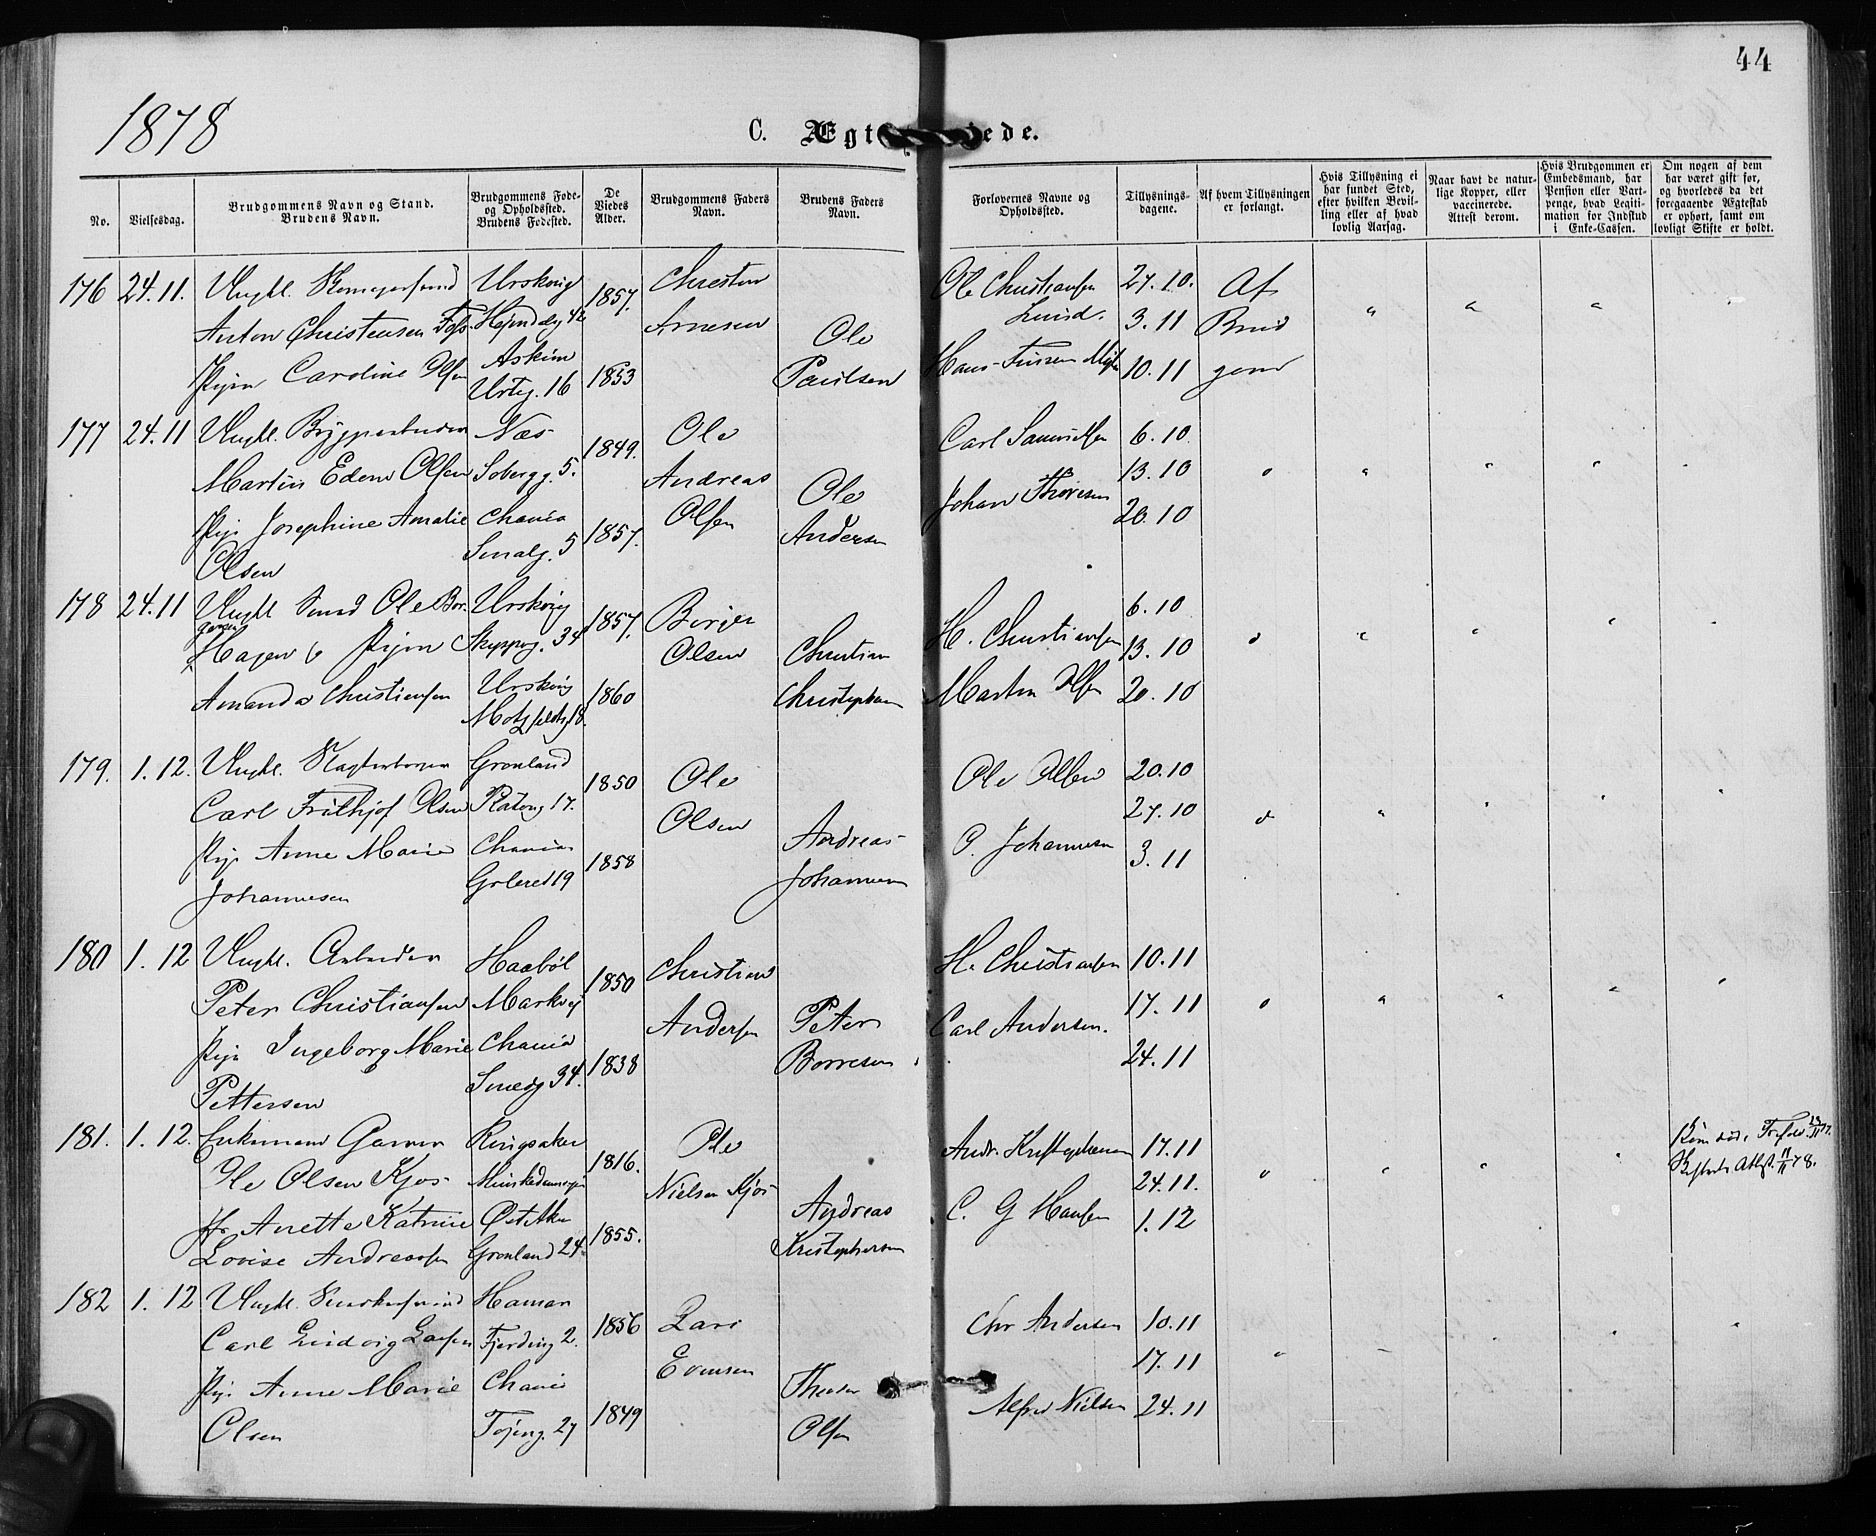 44
1878
C. Ægt iede.
No.
Vielsesdag.
Brudgommens Navn og Stand.
Brudens Navn.
Brudgommens Føde-
og Opholdsted.
Brudens Fødested.
De
Viedes
Alder.
Brudgommens Faders
Navn.
Brudens Faders
Navn.
Forlovernes Navne og
Opholdssted.
Tillysnings-
dagene.
Af hvem Tillysningen
er forlangt.
Hvis Tillysning ei
har fundet Sted,
efter hvilken Bevil-
ling eller af hvad
lovlig Aarsag.
Naar havt de natur-
lige Kopper, eller
vaccinerede.
Attest derom.
Hvis Brudgommen er
Embedsmand, har
Pension eller Vart-
penge, hvad Legiti-
mation for Indskud
i Enke-Cassen.
Om nogen af dem
har været gift før,
og hvorledes da det
foregaaende Ægteskab
er ophørt, samt om
lovligt Skifte er holdt.
176 24.11. Ungkl.
Anton Christensen Foss
Pigen Caroline Olsen
Urskoug
Askim
Urteg. 16
1857.
1853
Christen
Arnesen
Ole
Paulsen
Ole Christiansen
Lund.
Hans
27.10.
3.11
10.11
Af
Brud
gom
177 24.11 Ungkl. Bryggearbeider
Martin Edem Olsen
Pige Josephine Amalie
Olsen
Næs
Sobergg. 5.
Chania
Smalg. 5
1849.
1857.
Ole
Andreas
Olsen
Ole
Andersen
Carl Samuelsen
Johan Thoresen
6.10
13.10
20.10
178 24.11 Ungkl. Smed Ole Bor-
gersen
Hagen & Pigen
Amanda Christiansen
Urskoug
Skippeg. 34
Urskoug
Motzfeldtsg. 18.
1857.
1860
Borger
Olsen
Christian
Christophersen
H. Christiansen
Martin Olsen
6.10
13.10
20.10
179. 1.12. Ungkl.
Carl Frithjof Olsen
Pige Anne Marie
Johannesen
Grønland
Platoug 17.
Chania
Grlered 19
1850
1858
Ole
Olsen
Andreas
Johannesen
Ole Olsen
O. Johannesen
20.10
27.10
3.11
180 1.12 Ungkl. Arbeider
Peter Christiansen
Pige Ingeborg Marie
Pettersen
Haabøl
Markvej
Chania
Smedg 34.
1850
1838
Christian
Andersen
Peter
Borresen
H. Christiansen
Carl Andersen.
10.11
17.11
24.11
181. 1.12. Enkemand Garver
Ole Olsen Kjos
Jfr Anette Katrine
Lovise Andreassen
Ringsaker
Grønland 24.
1816.
1855.
Ole
Nielsen Kjos
Andreas
Kristophersen
Andr. Kristophersen
C. G Hansen
17.11
24.11.
1.12
182 1.12 Ungkl.
Carl Ludvig Larsen
Pige Anne Marie
Olsen
Hamar
Fjerding 2.
Chania
Tøieng. 27
1856
1849
Lars
Evensen
Olsen
Chr Andersen
Alfred Nielsen
10.11
17.11
24.11